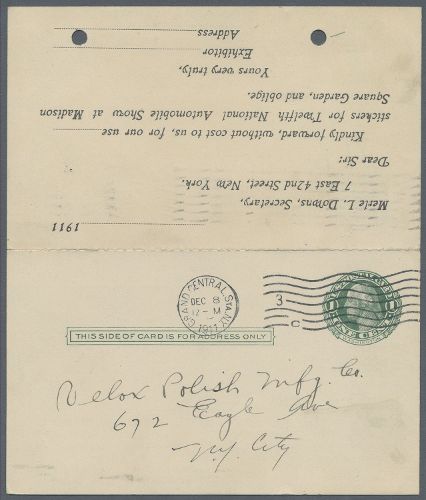 1911
Merle L. Downs, Secretary,
7 East 42nd Street, New York.
Dear Sir:
Kindly forward, without cost to us, for our use
stickers for Twelfth National Automobile Show at Madison
Square Garden, and oblige.
Yours very truly,
Exhibitor
Address
GRAND CENTRAL STA. N.Y.
DEC 8
12-M
1911
3
C
THIS SIDE OF CARD IS FOR ADDRESS ONLY
Velox Polish Mfg. Co.
672 Eagle Ave
N.Y. City